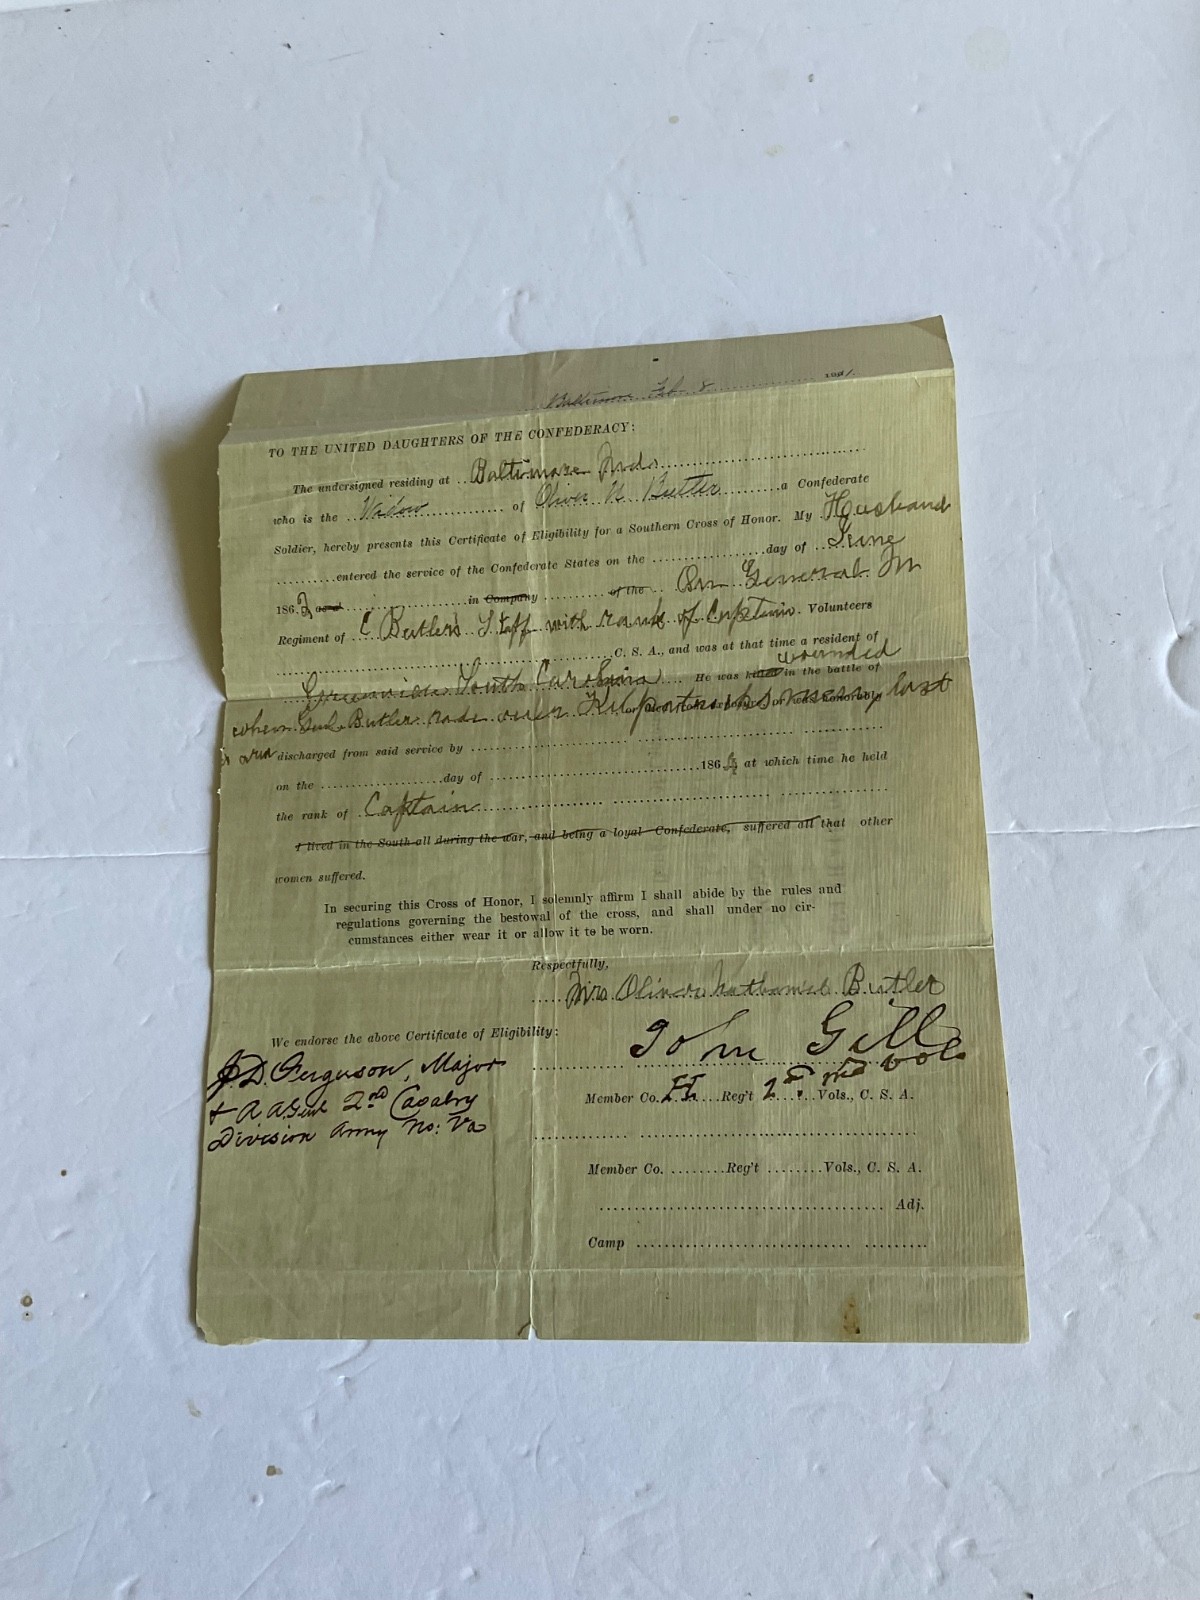 Baltimore Feb. 8 1901.
TO THE UNITED DAUGHTERS OF THE CONFEDERACY:
The undersigned residing at Baltimore Md.
who is the Widow of Oliver N. Butler a Confederate
Soldier, hereby presents this Certificate of Eligibility for a Southern Cross of Honor. My Husband
entered the service of the Confederate States on the day of June
186 and in Company of the On General M
Regiment of C Butler's Staff with rank of Captain. Volunteers
C. S. A., and was at that time a resident of
Greenville South Carolina He was killed wounded in the battle of
when Genl. Butler rode over Kilpatrick's or was honorably last
discharged from said service by
on the day of 186 at which time he held
the rank of Captain
I lived in the South all during the war, and being a loyal Confederate, suffered all that other
women suffered.
In securing this Cross of Honor, I solemnly affirm I shall abide by the rules and
regulations governing the bestowal of the cross, and shall under no cir-
cumstances either wear it or allow it to be worn.
Respectfully,
Mrs Oliver Nathaniel Butler
We endorse the above Certificate of Eligibility:
John Gill
J. D. Ferguson, Major
Member Co. H. Reg't 1st Md Vols Vols., C. S. A.
& A A Genl 2nd Cavalry
Division Army No: Va
Member Co. Reg't Vols., C. S. A.
Adj.
Camp